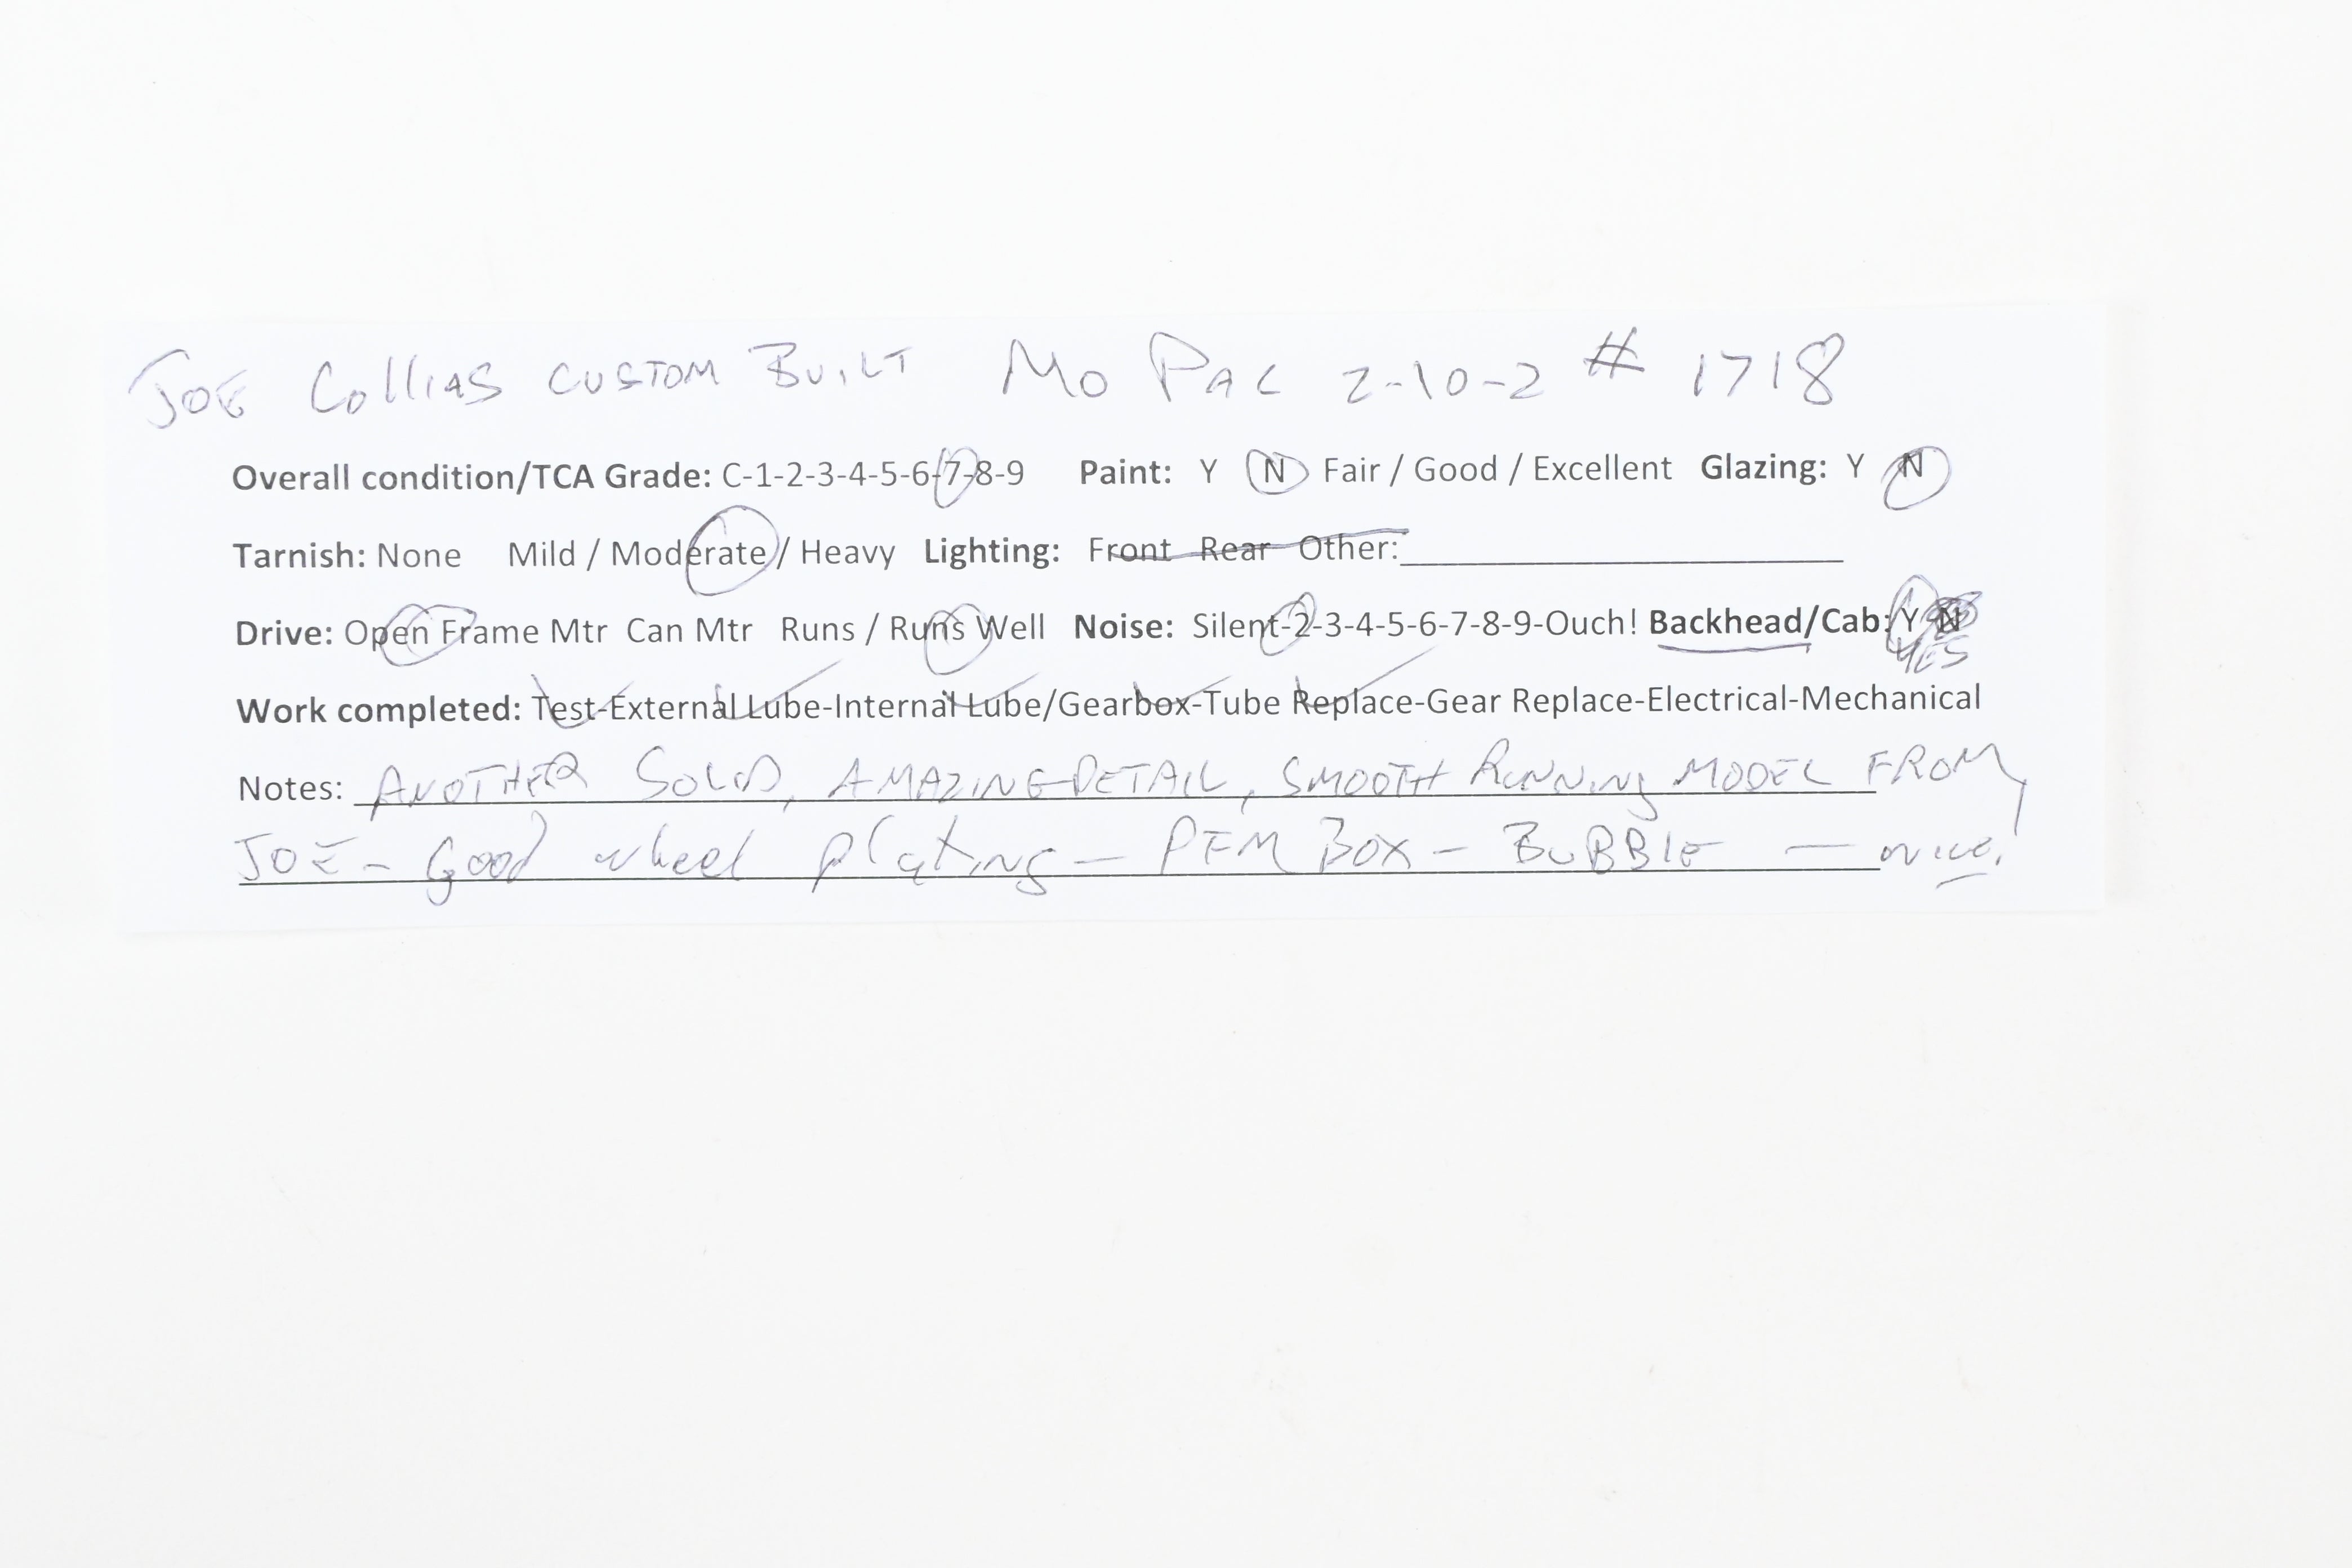 JOE CollIAS CUSTOM BUILT MO PAC 2-10-2 # 1718
Overall condition/TCA Grade: C-1-2-3-4-5-6-7-8-9 Paint: Y N Fair / Good / Excellent Glazing: Y N
Tarnish: None Mild / Moderate / Heavy Lighting: Front Rear Other:
Drive: Open Frame Mtr Can Mtr Runs / Runs Well Noise: Silent-2-3-4-5-6-7-8-9-Ouch! Backhead/Cab: Y N
YES
Work completed: Test-External Lube-Internal Lube/Gearbox-Tube Replace-Gear Replace-Electrical-Mechanical
Notes: ANOTHER SOLID, AMAZING DETAIL, SMOOTH RUNNINg MODEL FROM
JOE - Good wheel plating - PFM BOX - BUBBlE — nice.